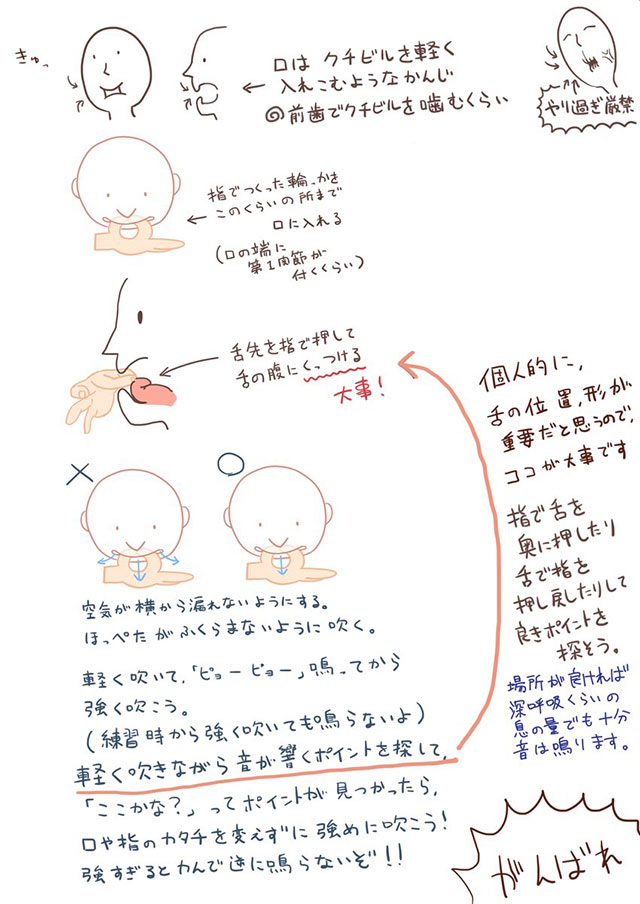 きゅっ
口は クチビルを軽く
入れこむようなかんじ
◎前歯でクチビルを噛むくらい
やり過ぎ厳禁
指でつくった輪っかを
このくらいの所まで
口に入れる
(口の端に
第1関節が
付くくらい)
舌先を指で押して
舌の腹にくっつける
大事!
個人的に、
舌の位置、形が
重要だと思うので、
ココが大事です
指で舌を
奥に押したり
舌で指を
押し戻したりして
良きポイントを
探そう。
場所が良ければ
深呼吸くらいの
息の量でも十分
音は鳴ります。
× ○
空気が横から漏れないようにする。
ほっぺたがふくらまないように吹く。
軽く吹いて、「ピョーピョー」鳴ってから
強く吹こう。
(練習時から強く吹いても鳴らないよ)
軽く吹きながら音が響くポイントを探して、
「ここかな?」ってポイントが見つかったら、
口や指のカタチを変えずに強めに吹こう!
強すぎると力んで逆に鳴らないぞ!!
がんばれ